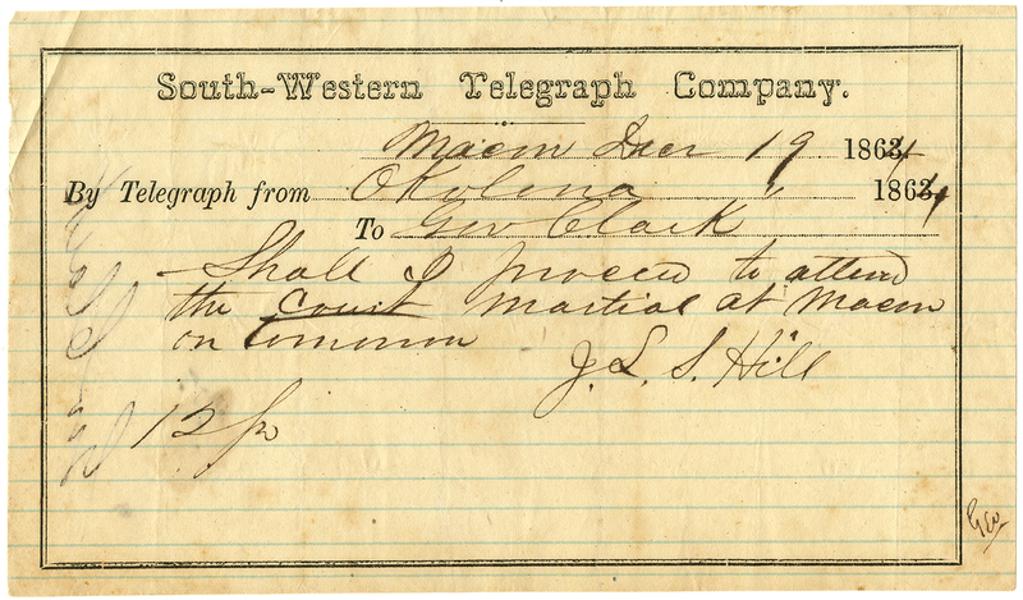 South-Western Telegraph Company.
Macon Decr 19 1864
By Telegraph from Okolona " 1864
To Gov Clark
Shall I proceed to attend
the Court Martial at Macon
on tomorrow
J. L. S. Hill
12 pr
Gov